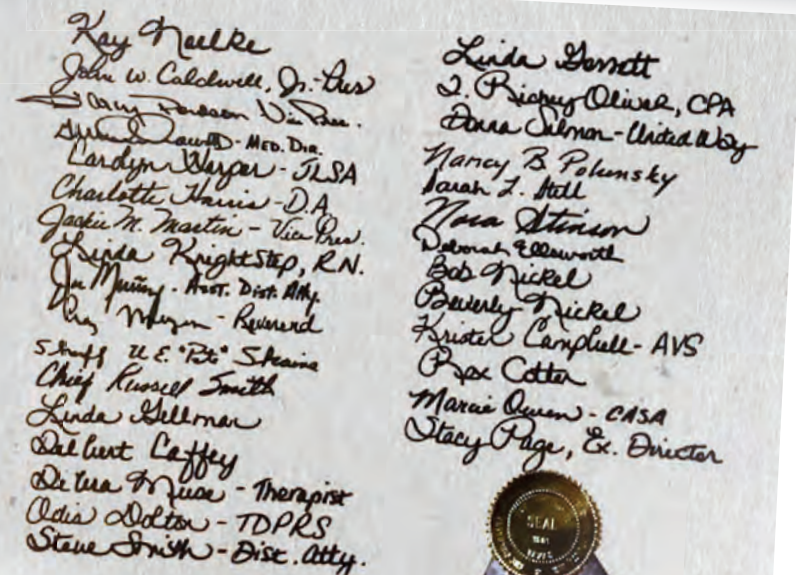 Kay Noelke
John W. Caldwell, Jr. - Pres
Vice Pres.
- Med. Dir.
Carolyn Harper - JLSA
Charlotte Harris - D.A.
Jackie M. Martin - Vice Pres.
Linda KnightStep, R.N.
Murray - Asst. Dist. Atty.
- Reverend
Sheriff U.E. "Pete" Skains
Chief Russell Smith
Linda Gillman
Delbert Caffey
Debra Muse - Therapist
Odis Dolton - TDPRS
Steve Smith - Dist. Atty.
Linda Garrett
T. Richey Oliver, CPA
Donna Salmon - United Way
Nancy B Polunsky
Sarah L. Still
Nora Stinson
Deborah Ellsworth
Bob Nickel
Beverly Nickel
Krister Campbell - AVS
Rex Cotter
Marcie Owen - CASA
Stacy Page, Ex. Director
SEAL